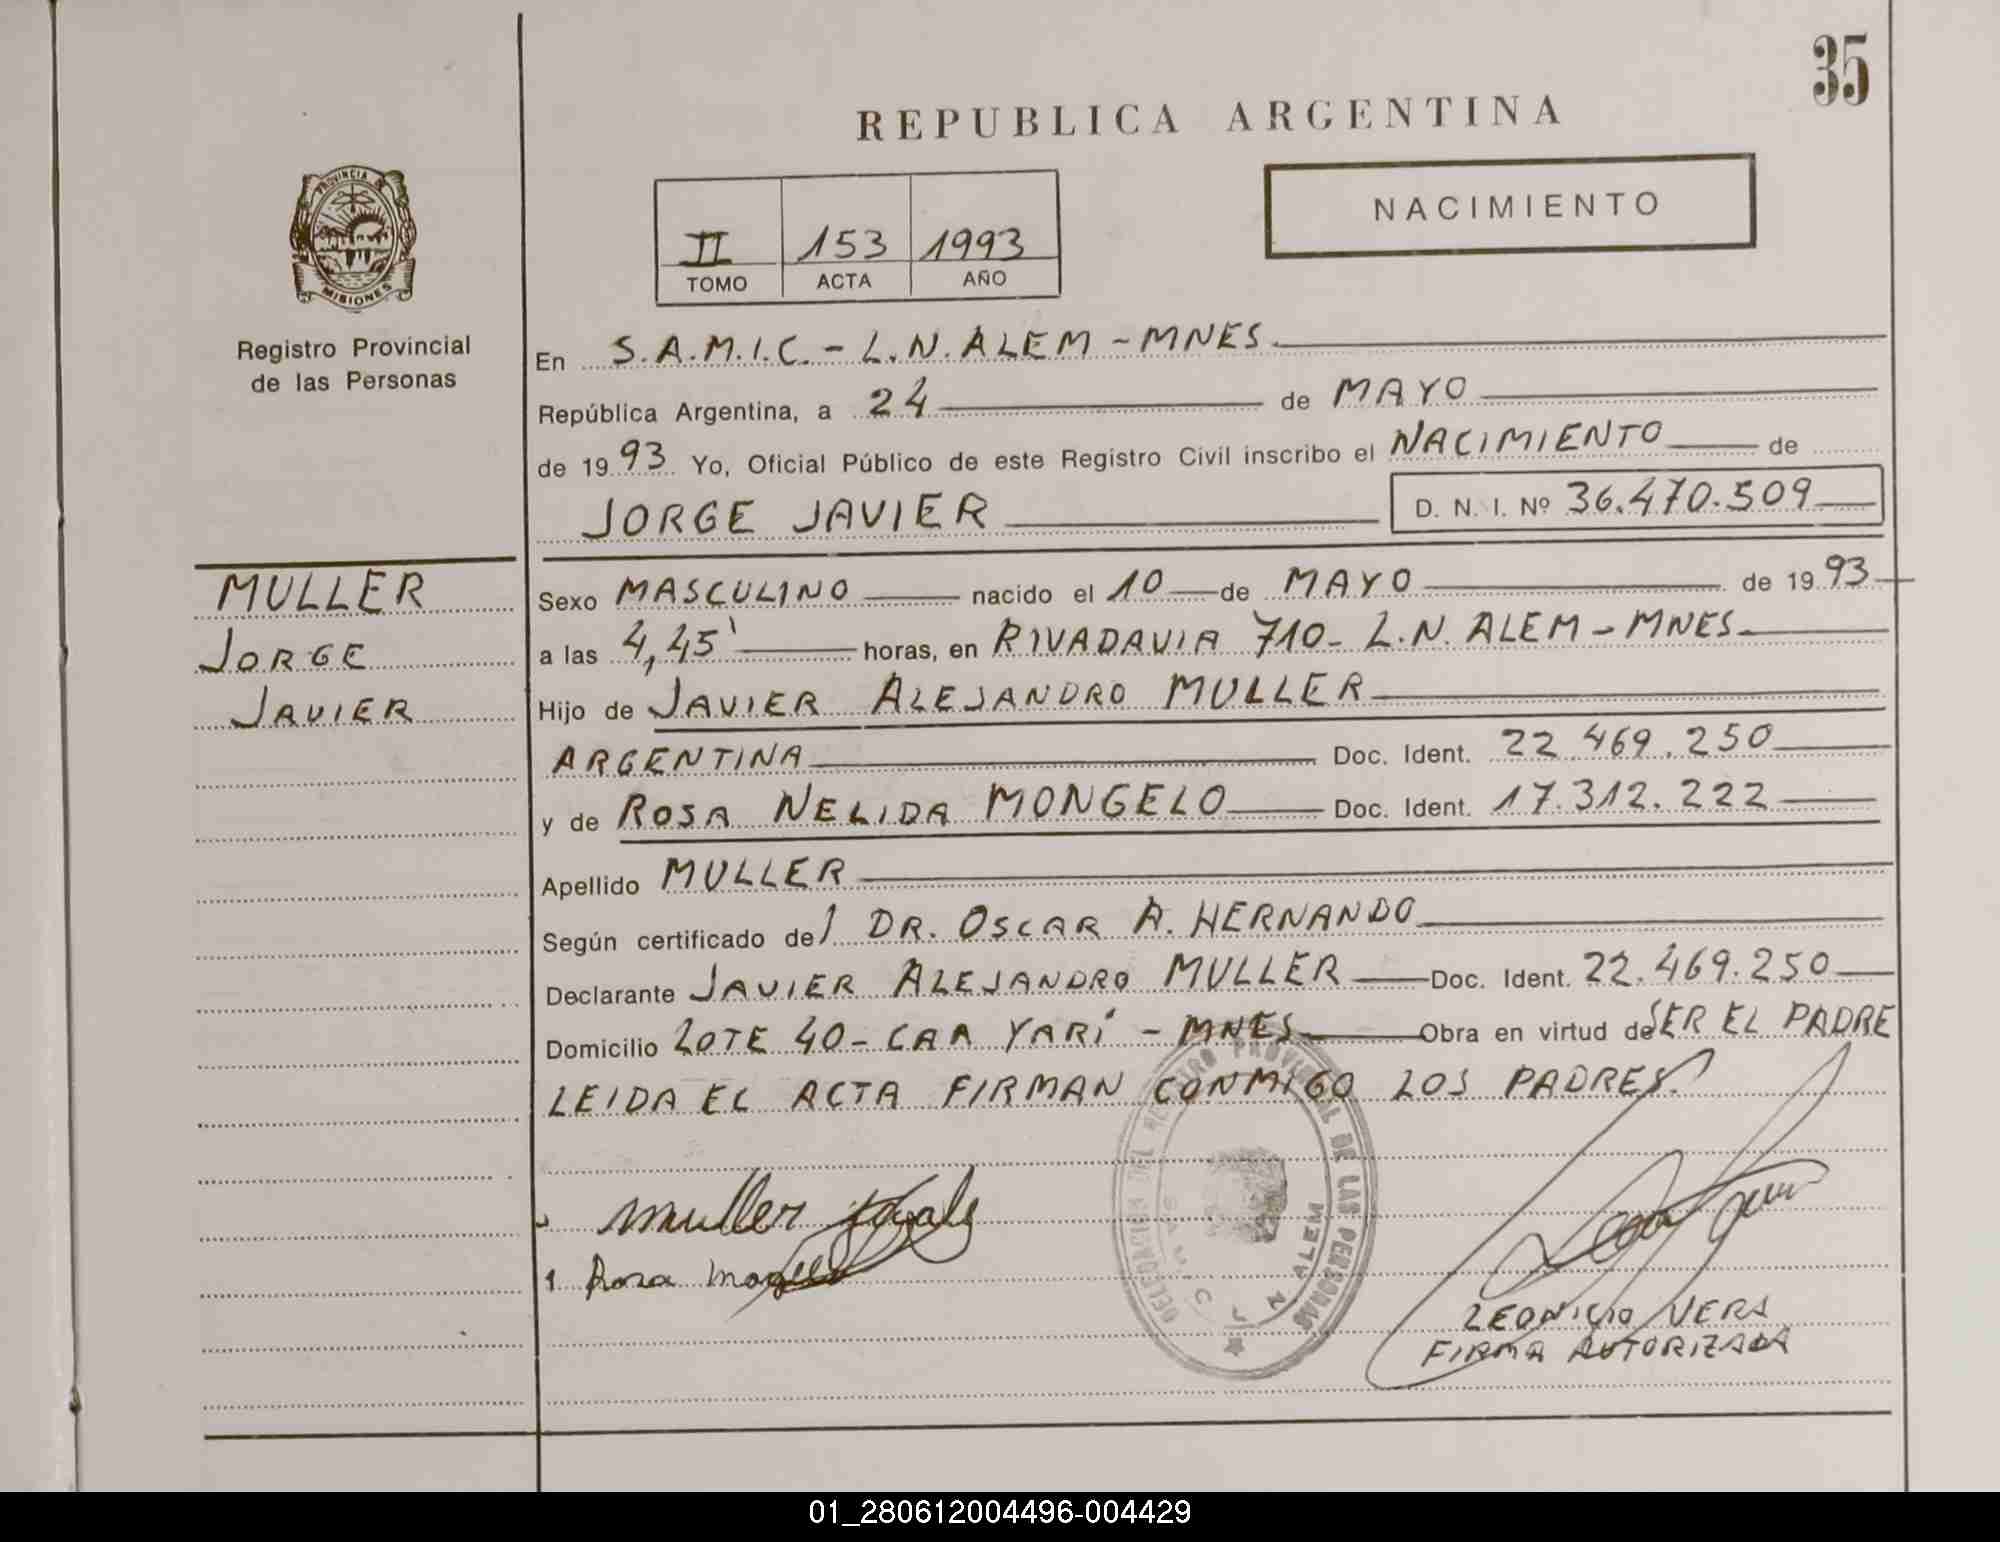 35
REPUBLICA ARGENTINA
NACIMIENTO
II 153 1993
TOMO ACTA AÑO
PROVINCIA DE
MISIONES
Registro Provincial
de las Personas
En S.A.M.I.C. - L.N. ALEM - MNES.
República Argentina, a 24 de MAYO
de 1993 Yo, Oficial Público de este Registro Civil inscribo el NACIMIENTO de
JORGE JAVIER D. N. I. Nº 36.470.509
MULLER
JORGE
JAVIER
Sexo MASCULINO nacido el 10 de MAYO de 1993
a las 4,45' horas, en RIVADAVIA 710- L.N. ALEM - MNES.
Hijo de JAVIER ALEJANDRO MULLER
ARGENTINA Doc. Ident. 22.469.250
y de ROSA NELIDA MONGELO Doc. Ident. 17.312.222
Apellido MULLER
Según certificado del DR. OSCAR A. HERNANDO
Declarante JAVIER ALEJANDRO MULLER Doc. Ident. 22.469.250
Domicilio LOTE 40 - CAA YARÍ - MNES Obra en virtud de SER EL PADRE
LEIDA EL ACTA FIRMAN CONMIGO LOS PADRES.
muller
Rosa
DELEGACION DEL REGISTRO PROVINCIAL DE LAS PERSONAS
S.A.M.I.C. L N ALEM
LEONICIO VERA
FIRMA AUTORIZADA
01_280612004496-004429